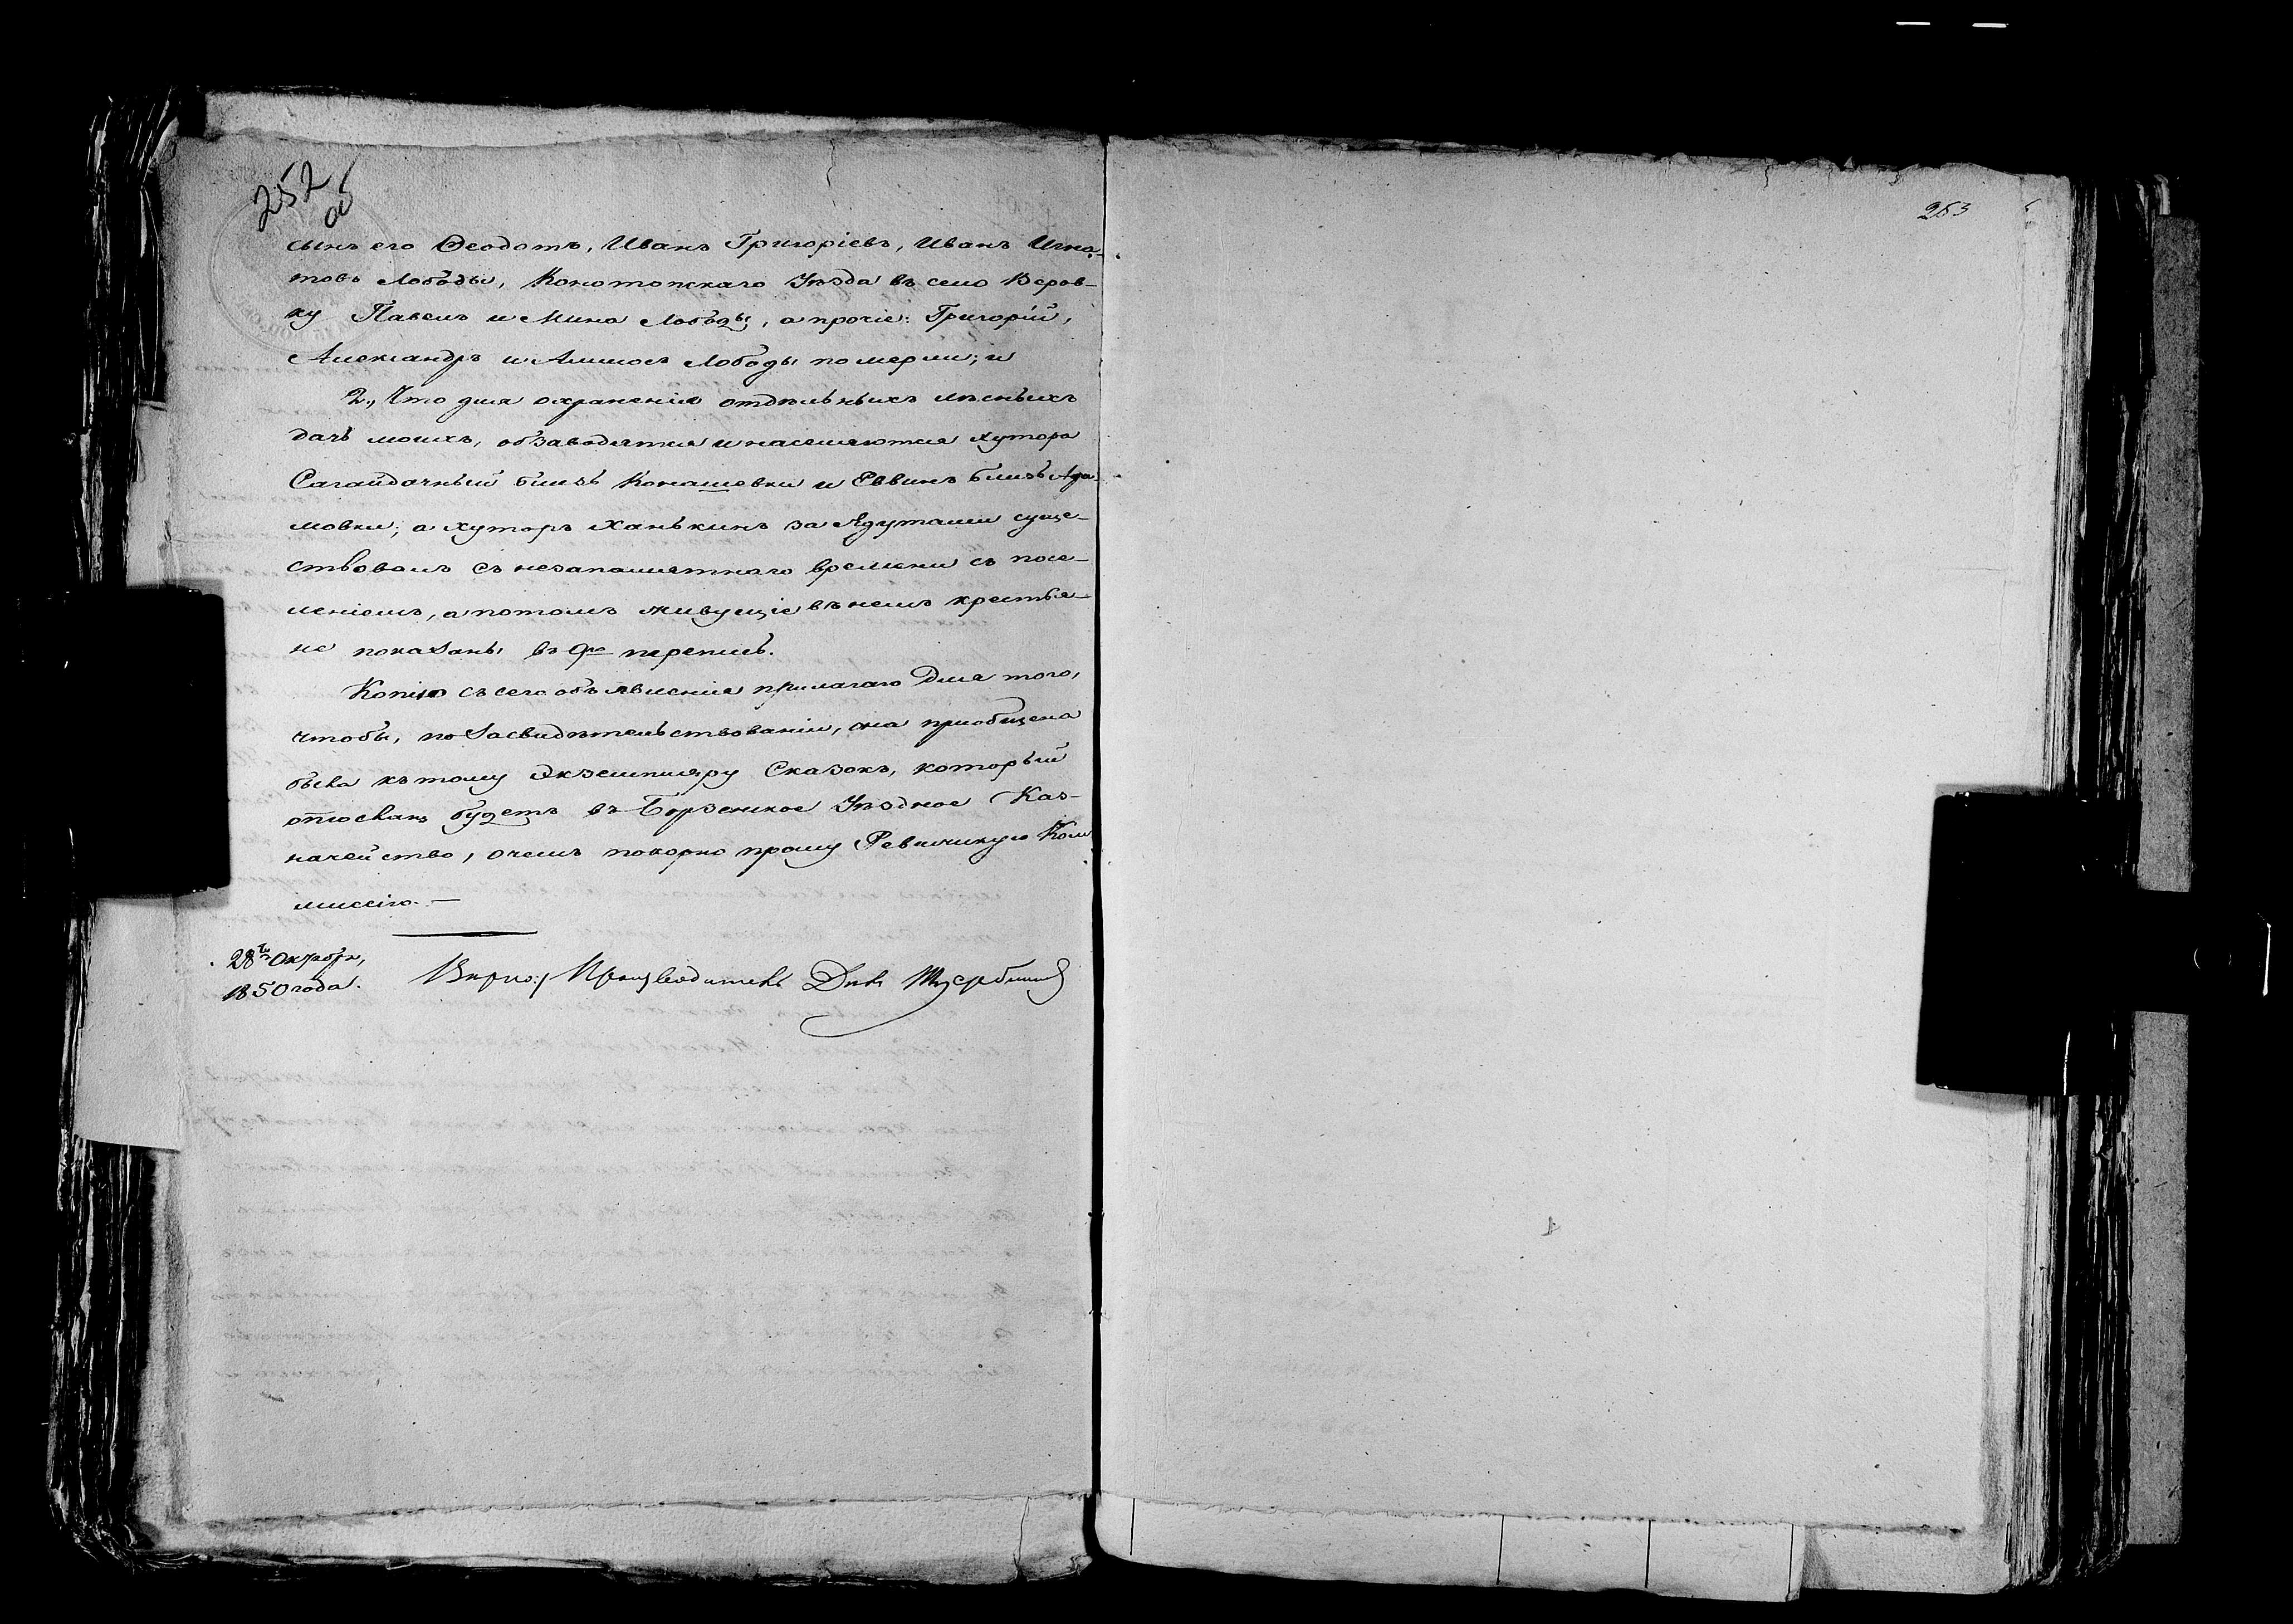 252
об
253
сынъ его Ѳеодотъ, Иванъ Григоріевъ, Иванъ Игна-
товъ Лободы, Конотопскаго Уѣзда въ село Веров-
ку Павелъ и Мина Лободы, а прочіе: Григорій,
Александръ и Амвросъ Лободы померли; и
2., Что для охраненія отдѣльныхъ лѣсныхъ
дачъ моихъ, обзаводятся и населяются хутора
Сагайдачный близь Конашевки и Еввинъ близь Ада-
мовки; а хуторъ Ханькинъ за Ядутами суще-
ствовалъ съ незапамятнаго времени съ посе-
леніемъ, а потомъ живущіе въ немъ крестья-
не показаны въ 9ю перепись.
Копію съ сего объявленія прилагаю для того,
чтобы, по засвидѣтельствованіи, она приобщена
была къ тому экземпляру Сказокъ, который
отосланъ будетъ въ Борзенское Уѣздное Каз-
начейство, о чемъ покорно прошу Ревизскую Ком
миссію.—
28го Октября,
1850 года.
Вѣрно: Производитель Дѣлъ Щербина